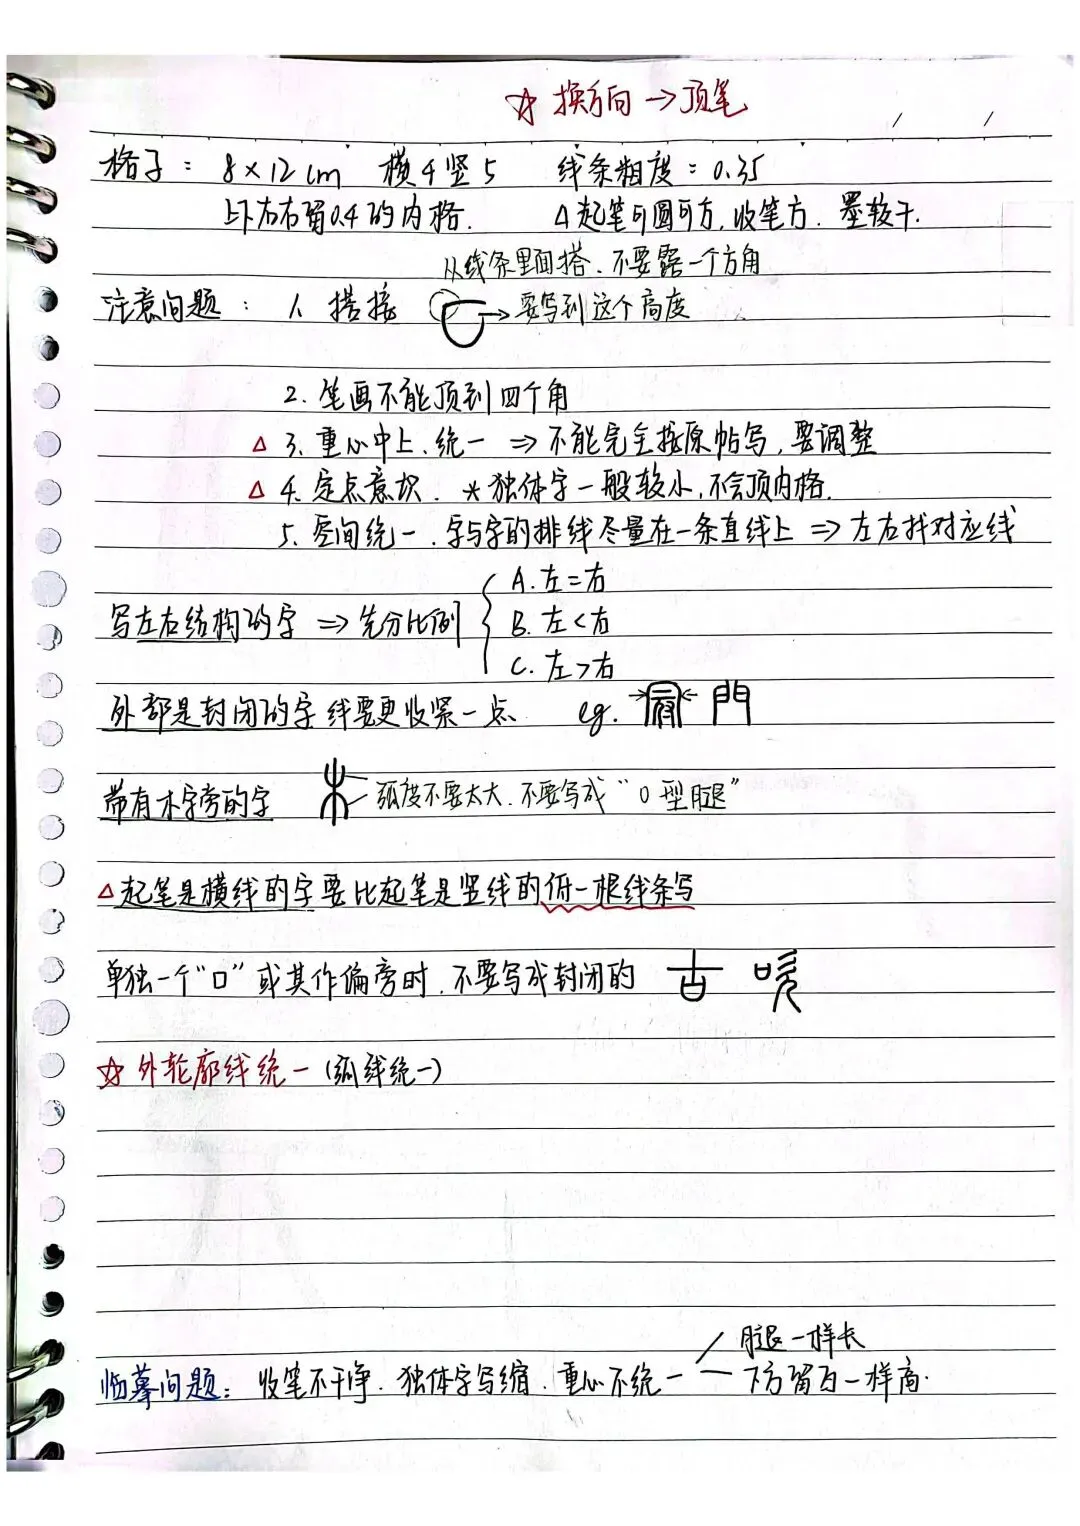 ☆ 换方向 → 顶笔
格子： 8×12cm 横4竖5 线条粗度=0.35
上下左右留0.4的内格. △起笔可圆可方,收笔方. 墨较干.
从线条里面搭、不要露一个方角
注意问题： 1、搭接 → 要写到这个高度
2、笔画不能顶到四个角
△ 3、重心中上、统一 ⇒ 不能完全按原帖写,要调整
△ 4、定点意识. *独体字一般较小,不会顶内格.
5、空间统一.字与字的排线尽量在一条直线上 ⇒ 左右找对应线
A.左=右
写左右结构的字 ⇒ 先分比例 B.左<右
C.左>右
外部是封闭的字 线要更收紧一点 eg. 門
带有木字旁的字 木 弧度不要太大.不要写成“O型腿”
△起笔是横线的字要比起笔是竖线的低一根线条写
单独一个“口”或其作偏旁时.不要写成封闭的 古
☆ 外轮廓线统一(弧线统一)
腿一样长
临摹问题：收笔不干净.独体字写缩.重心不统一 下方留白一样高.